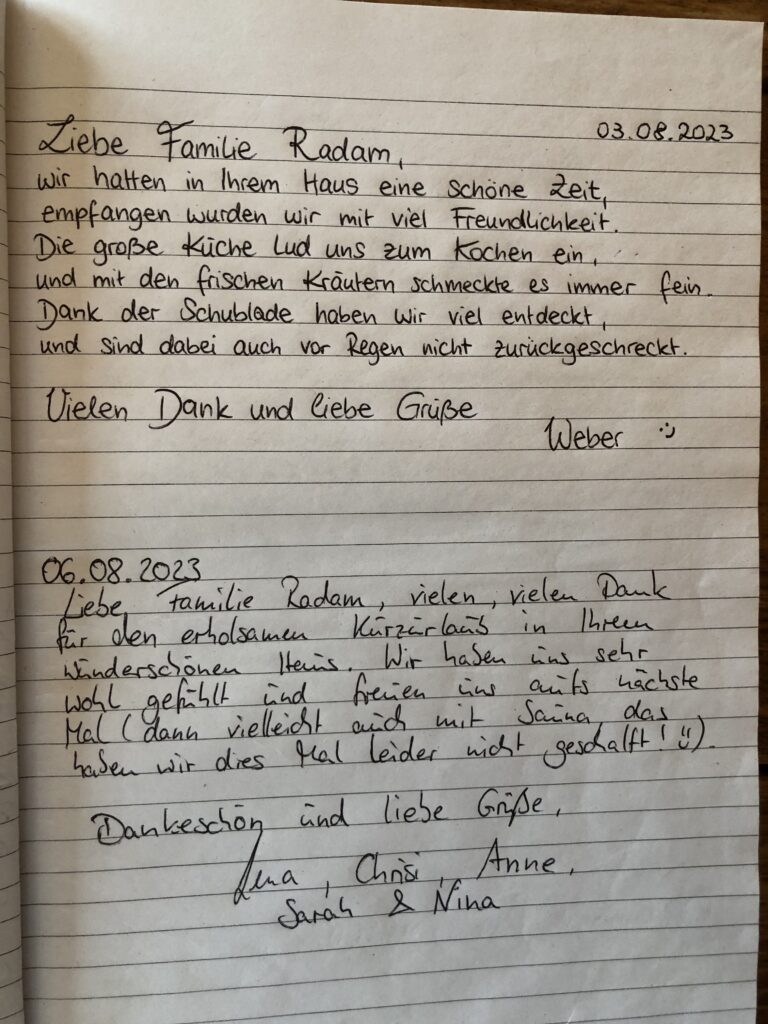 03.08.2023
Liebe Familie Radam,
wir hatten in Ihrem Haus eine schöne Zeit,
empfangen wurden wir mit viel Freundlichkeit.
Die große Küche lud uns zum Kochen ein,
und mit den frischen Kräutern schmeckte es immer fein.
Dank der Schublade haben wir viel entdeckt,
und sind dabei auch vor Regen nicht zurückgeschreckt.
Vielen Dank und liebe Grüße
Weber :)
06.08.2023
Liebe Familie Radam, vielen, vielen Dank
für den erholsamen Kurzurlaub in Ihrem
wunderschönen Haus. Wir haben uns sehr
wohl gefühlt und freuen uns aufs nächste
Mal (dann vielleicht auch mit Sauna, das
haben wir dies Mal leider nicht geschafft! :)).
Dankeschön und liebe Grüße,
Lena, Chrisi, Anne,
Sarah & Nina